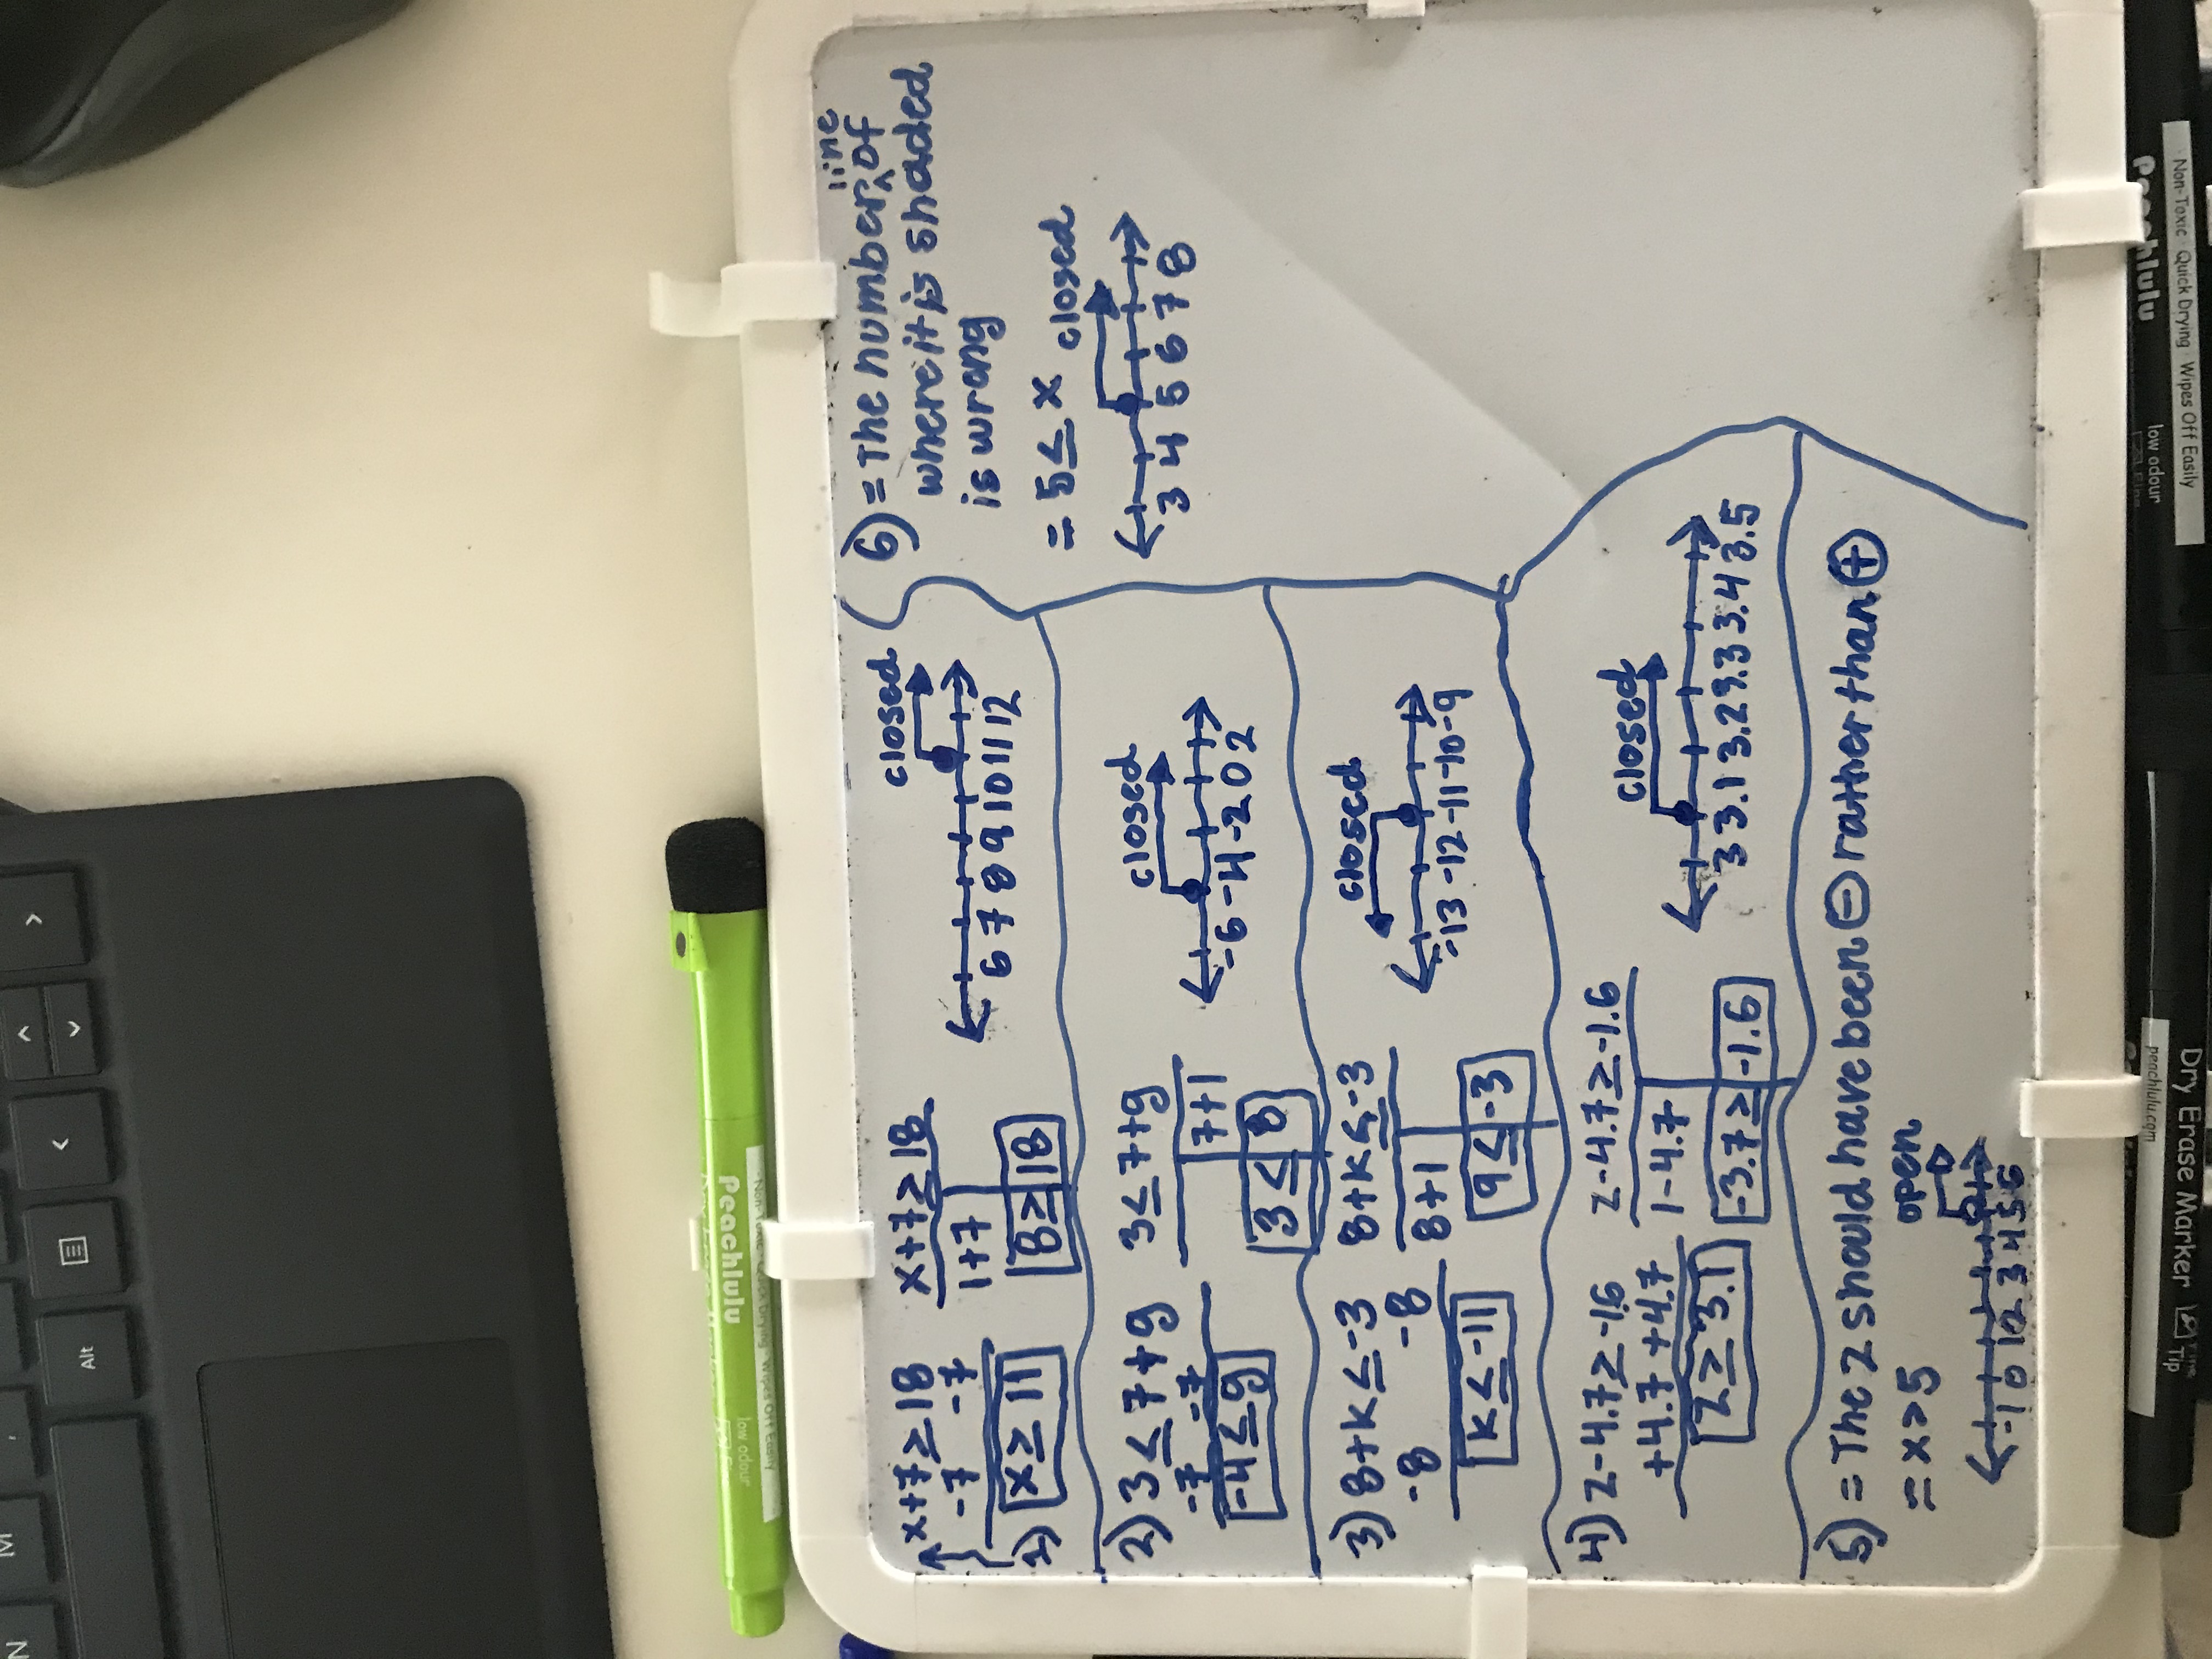 N M ,
Alt < ^ v >
Peachlulu
low odour
Non-Toxic · Quick Drying · Wipes Off Easily
x+7≥18
-7 -7
1) x≥11
x+7≥18
1+7
8≥18
closed
6 7 8 9 10 11 12
2) 3≤7+g
-7 -7
-4≤g
3≤7+g
7+1
3≤8
closed
-6 -4 -2 0 2
3) 8+k≤-3
-8 -8
k≤-11
8+k≤-3
8+1
9≤-3
closed
-13 -12 -11 -10 -9
4) z-4.7≥-1.6
+4.7 +4.7
z≥3.1
z-4.7≥-1.6
1-4.7
-3.7≥-1.6
closed
3 3.1 3.2 3.3 3.4 3.5
5) = The 2 should have been ⊖ rather than ⊕
= x>5
open
-1 0 1 2 3 4 5 6
6) = The number line of
where it is shaded
is wrong
= 5≤x
closed
3 4 5 6 7 8
peachlulu.com
Dry Erase Marker
Fine Tip
Peachlulu
low odour
Non-Toxic · Quick Drying · Wipes Off Easily